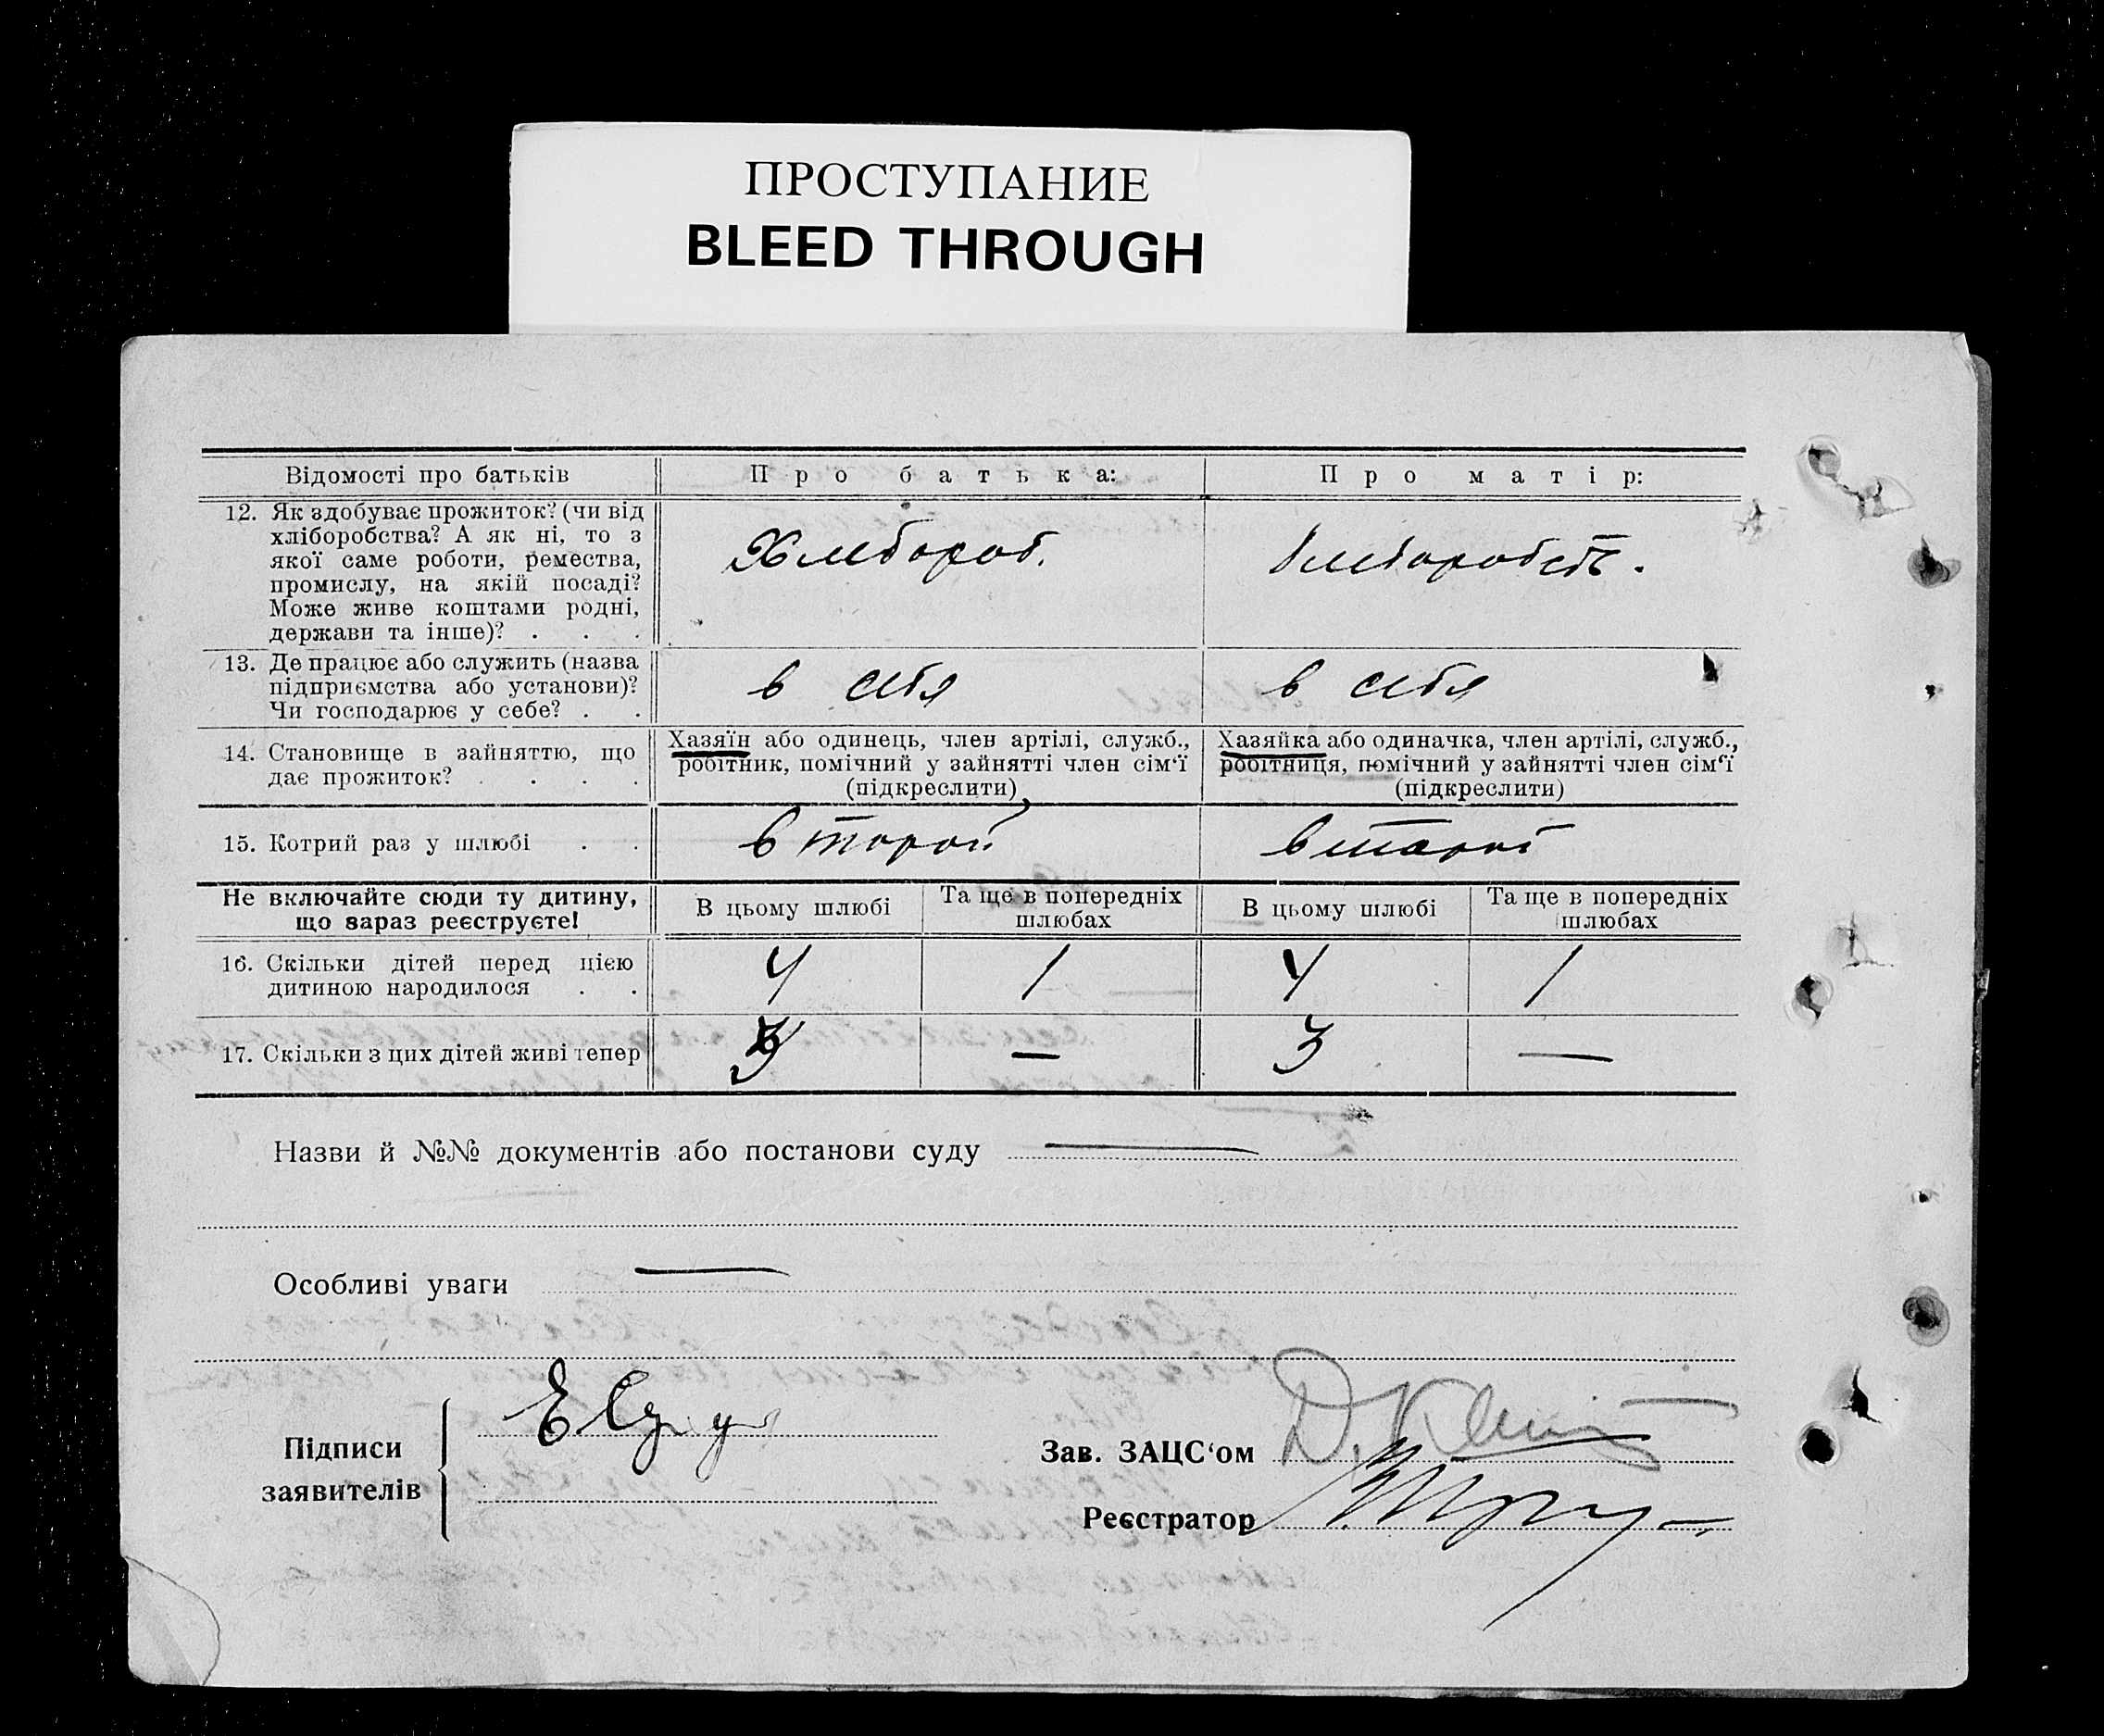 ПРОСТУПАНИЕ
BLEED THROUGH
Відомості про батьків
Про батька:
Про матір:
12. Як здобуває прожиток? (чи від
хліборобства? А як ні, то з
якої саме роботи, ремества,
промислу, на якій посаді?
Може живе коштами родні,
держави та інше)? . . .
Хлебороб.
13. Де працює або служить (назва
підприємства або установи)?
Чи господарює у себе? . .
в себя
в себя
14. Становище в зайняттю, що
дає прожиток? . . . .
Хазяїн або одинець, член артілі, служб.,
робітник, помічний у зайнятті член сім‘ї
(підкреслити)
Хазяйка або одиначка, член артілі, служб.,
робітниця, помічний у зайнятті член сім‘ї
(підкреслити)
15. Котрий раз у шлюбі . .
второй
второй
Не включайте сюди ту дитину,
що зараз реєструєте!
В цьому шлюбі
Та ще в попередніх
шлюбах
В цьому шлюбі
Та ще в попередніх
шлюбах
16. Скільки дітей перед цією
дитиною народилося . .
4
1
4
1
17. Скільки з цих дітей живі тепер
3
—
3
—
Назви й №№ документів або постанови суду —
Особливі уваги —
Підписи
заявителів
Зав. ЗАЦС‘ом
Реєстратор